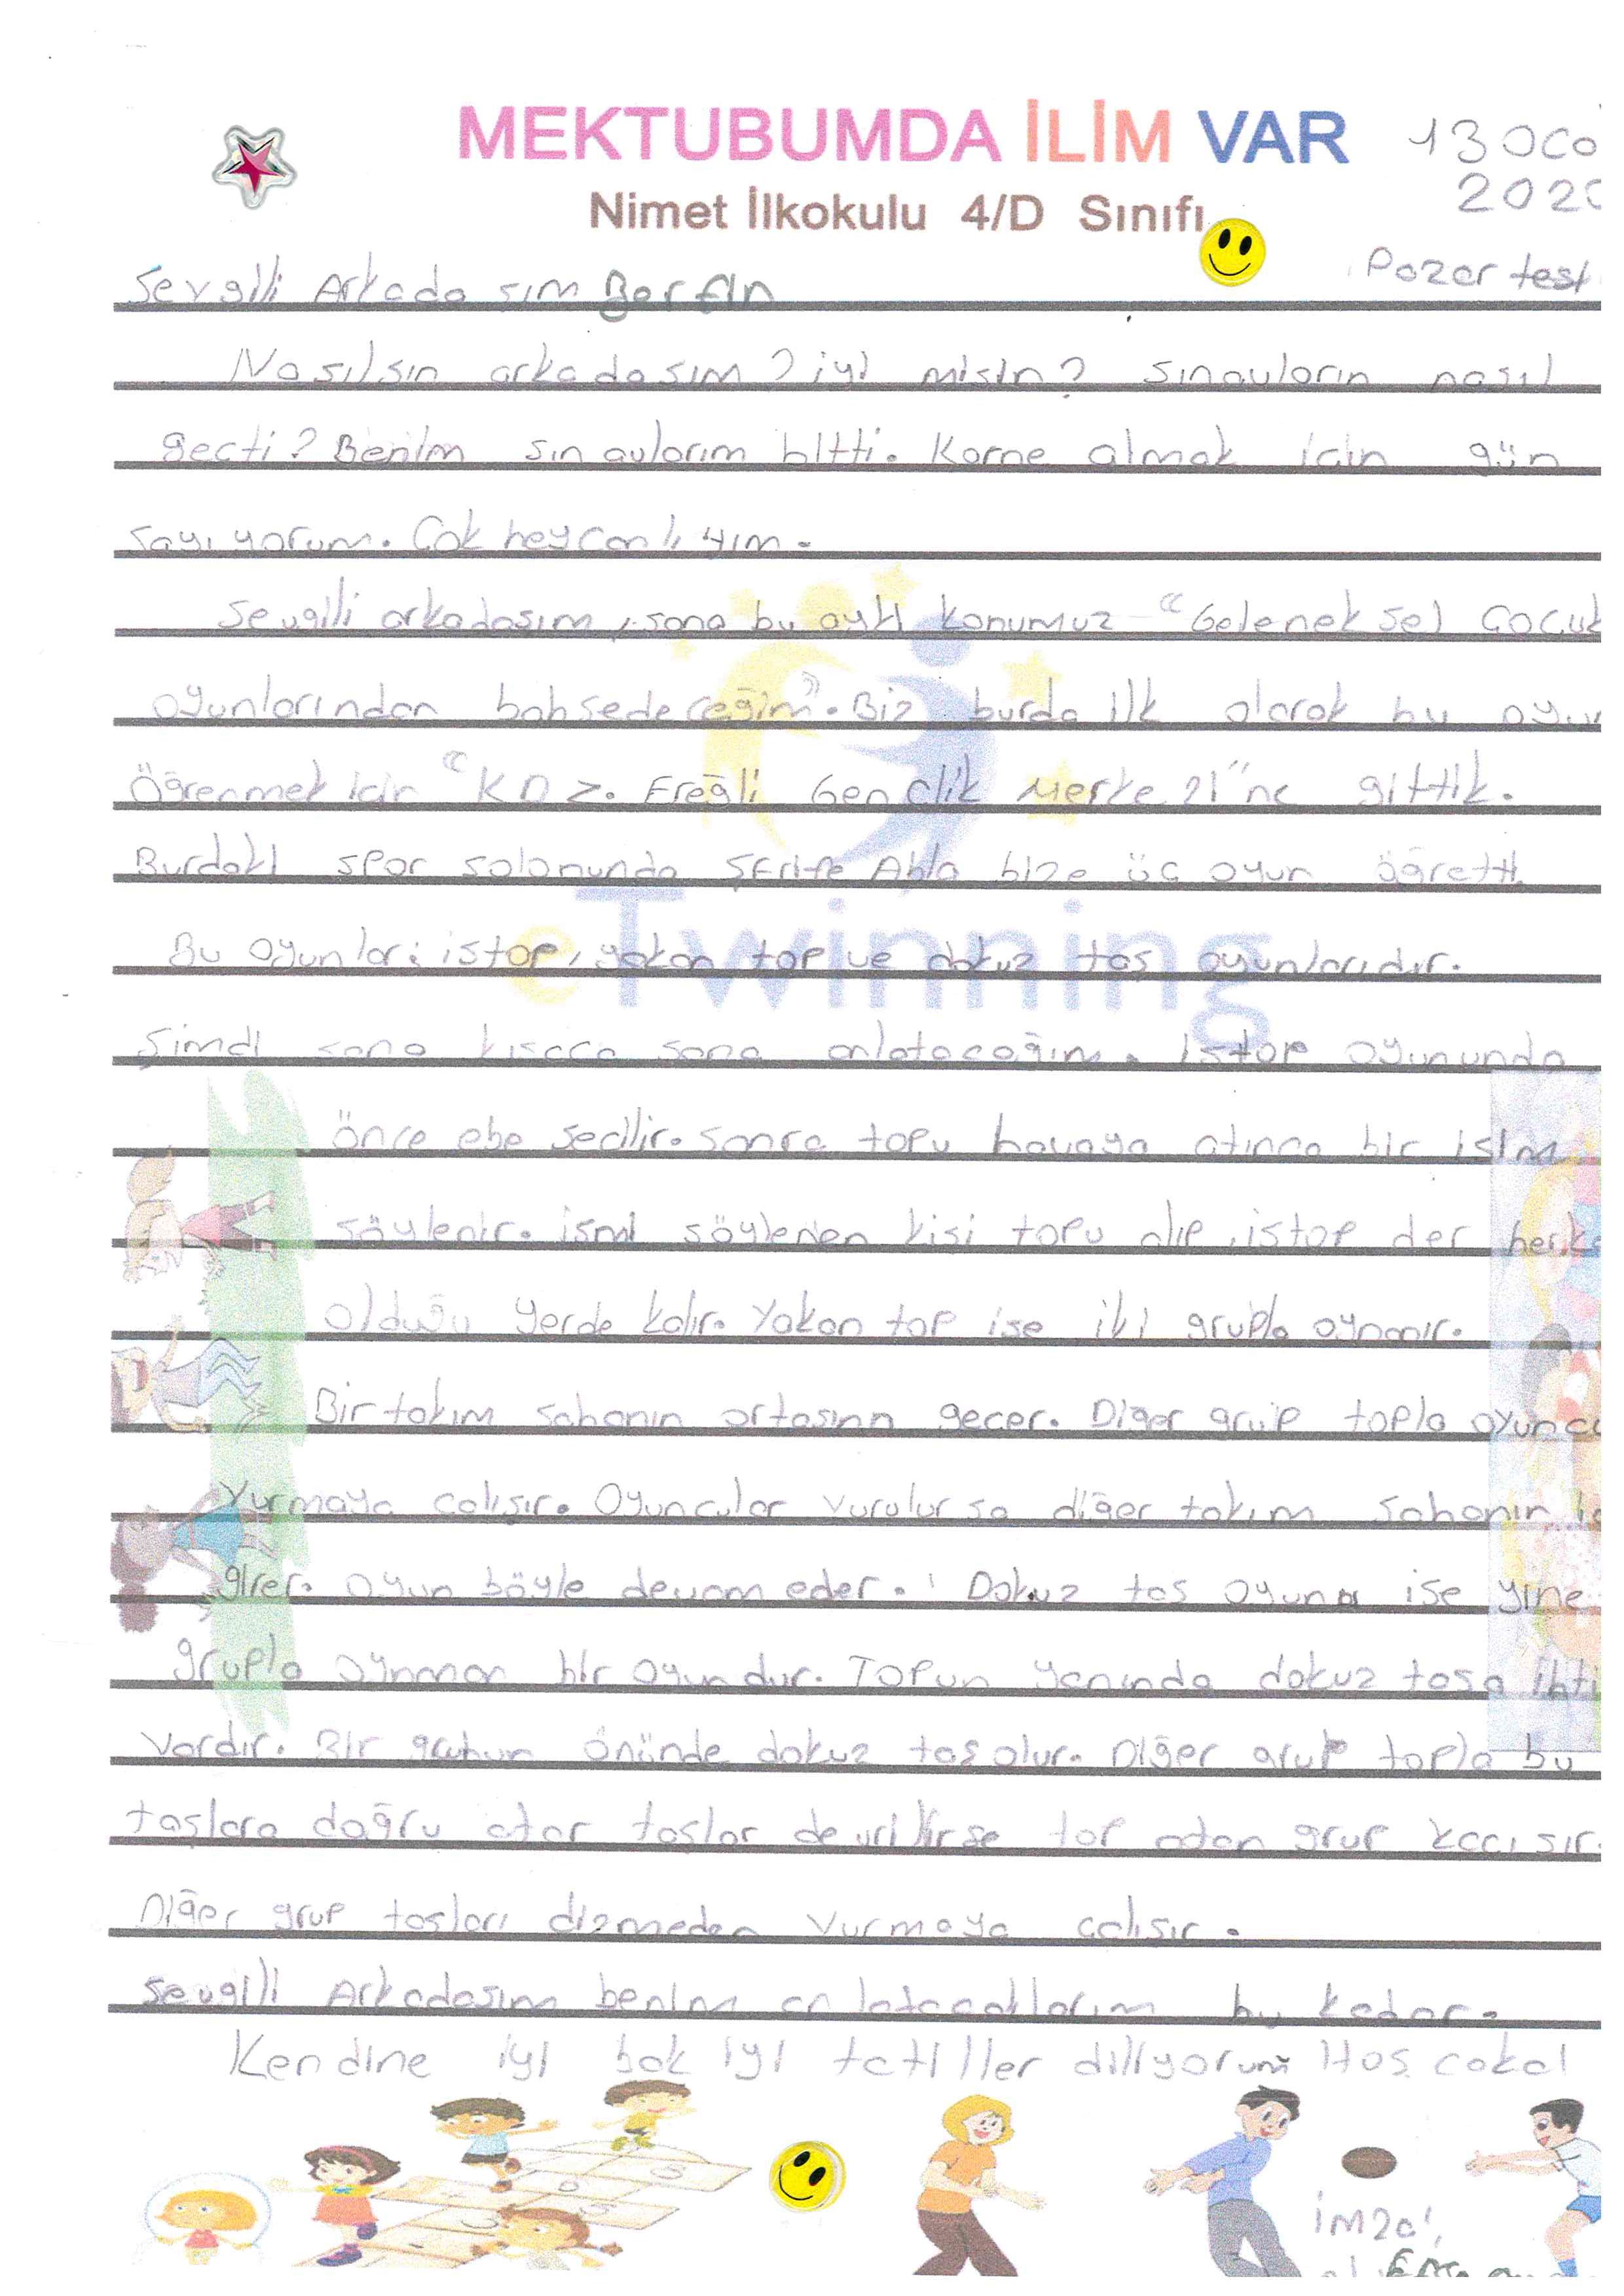 MEKTUBUMDA İLİM VAR
13 Oca
2020
Nimet İlkokulu 4/D Sınıfı
Pazartesi
Sevgili Arkadaşım Berfin
Nasılsın arkadaşım? iyi misin? Sınavların nasıl
geçti? Benim sınavlarım bitti. Karne almak için gün
sayıyorum. Çok heycanlıyım.
Sevgili arkadaşım, sana bu ayki konumuz "Geleneksel Çocuk
oyunlarından bahsedeceğim". Biz burda ilk olarak bu oyun
Öğrenmek için "KDZ. Ereğli Gençlik Merkezi"ne gittik.
Burdaki spor salonunda Şerife Abla bize üç oyun öğretti.
Bu oyunlar: istop, yakan top ve dokuz taş oyunlarıdır.
Şimdi sana kısaca sana anlatacağım. İstop oyununda
önce ebe seçilir. Sonra topu havaya atınca bir isim
söylenir. ismi söylenen kişi topu alıp istop der herke
olduğu yerde kalır. Yakan top ise iki grupla oynanır.
Bir takım sahanın ortasına geçer. Diğer grup topla oyuncu
Vurmaya çalışır. Oyuncular vurulursa diğer takım sahanın iç
girer. Oyun böyle devam eder. Dokuz taş oyunu ise yine
grupla oynanan bir oyundur. Topun yanında dokuz taşa ihti
vardır. Bir grubun önünde dokuz taş olur. Diğer grup topla bu
taşlara doğru atar taşlar devrilirse top atan grup kaçışır.
Diğer grup taşları dizmeden vurmaya çalışır.
Sevgili Arkadaşım benim anlatacaklarım bu kadar.
Kendine iyi bak iyi tatiller diliyorum Hoş çakal
imza:
eTwinning